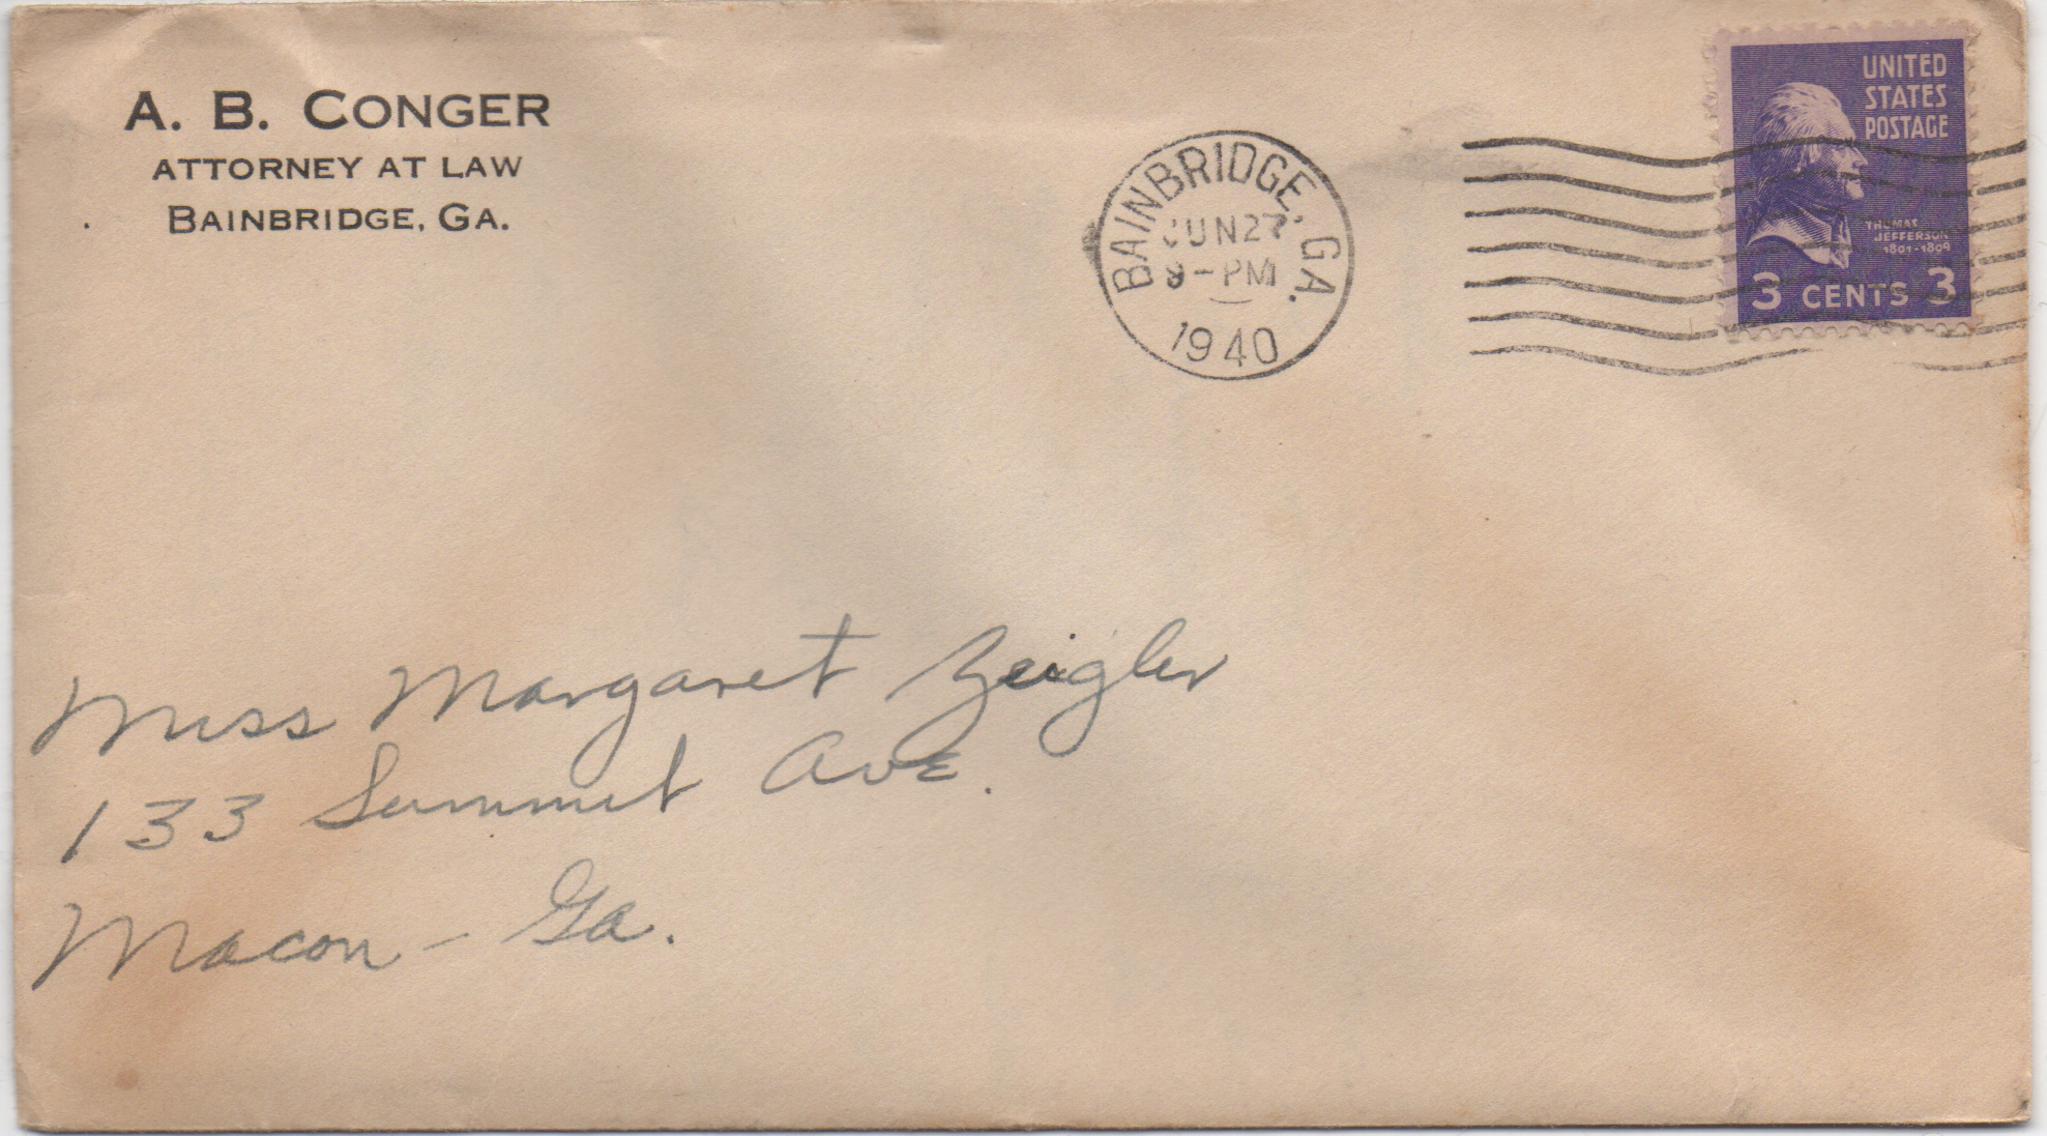 A. B. CONGER
ATTORNEY AT LAW
BAINBRIDGE, GA.
BAINBRIDGE, GA.
JUN 27
8-PM
1940
UNITED
STATES
POSTAGE
THOMAS
JEFFERSON
1801-1809
3 CENTS 3
Miss Margaret Zeigler
133 Summit Ave.
Macon - Ga.